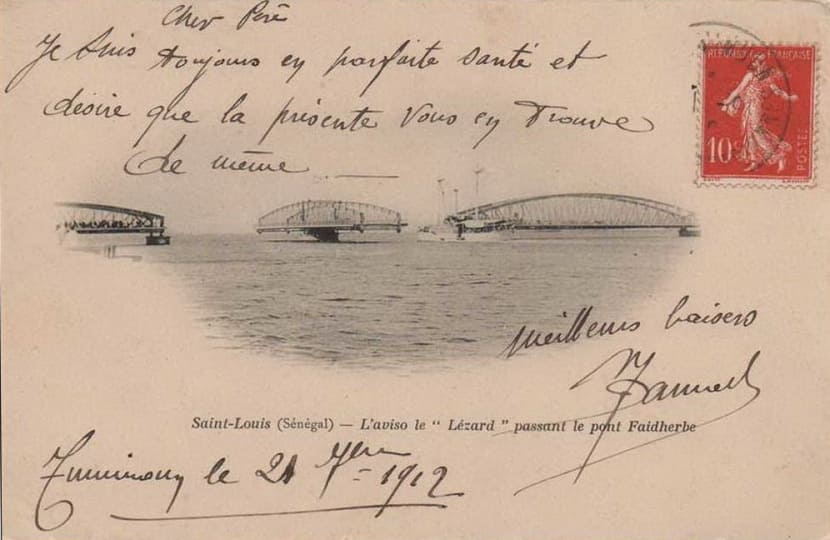 Cher Père
Je suis toujours en parfaite santé et
désire que la présente vous en trouve
de même
REPUBLIQUE FRANÇAISE
10c
POSTES
meilleurs baisers
Saint-Louis (Sénégal) — L'aviso le " Lézard " passant le pont Faidherbe
le 21 7bre 1912